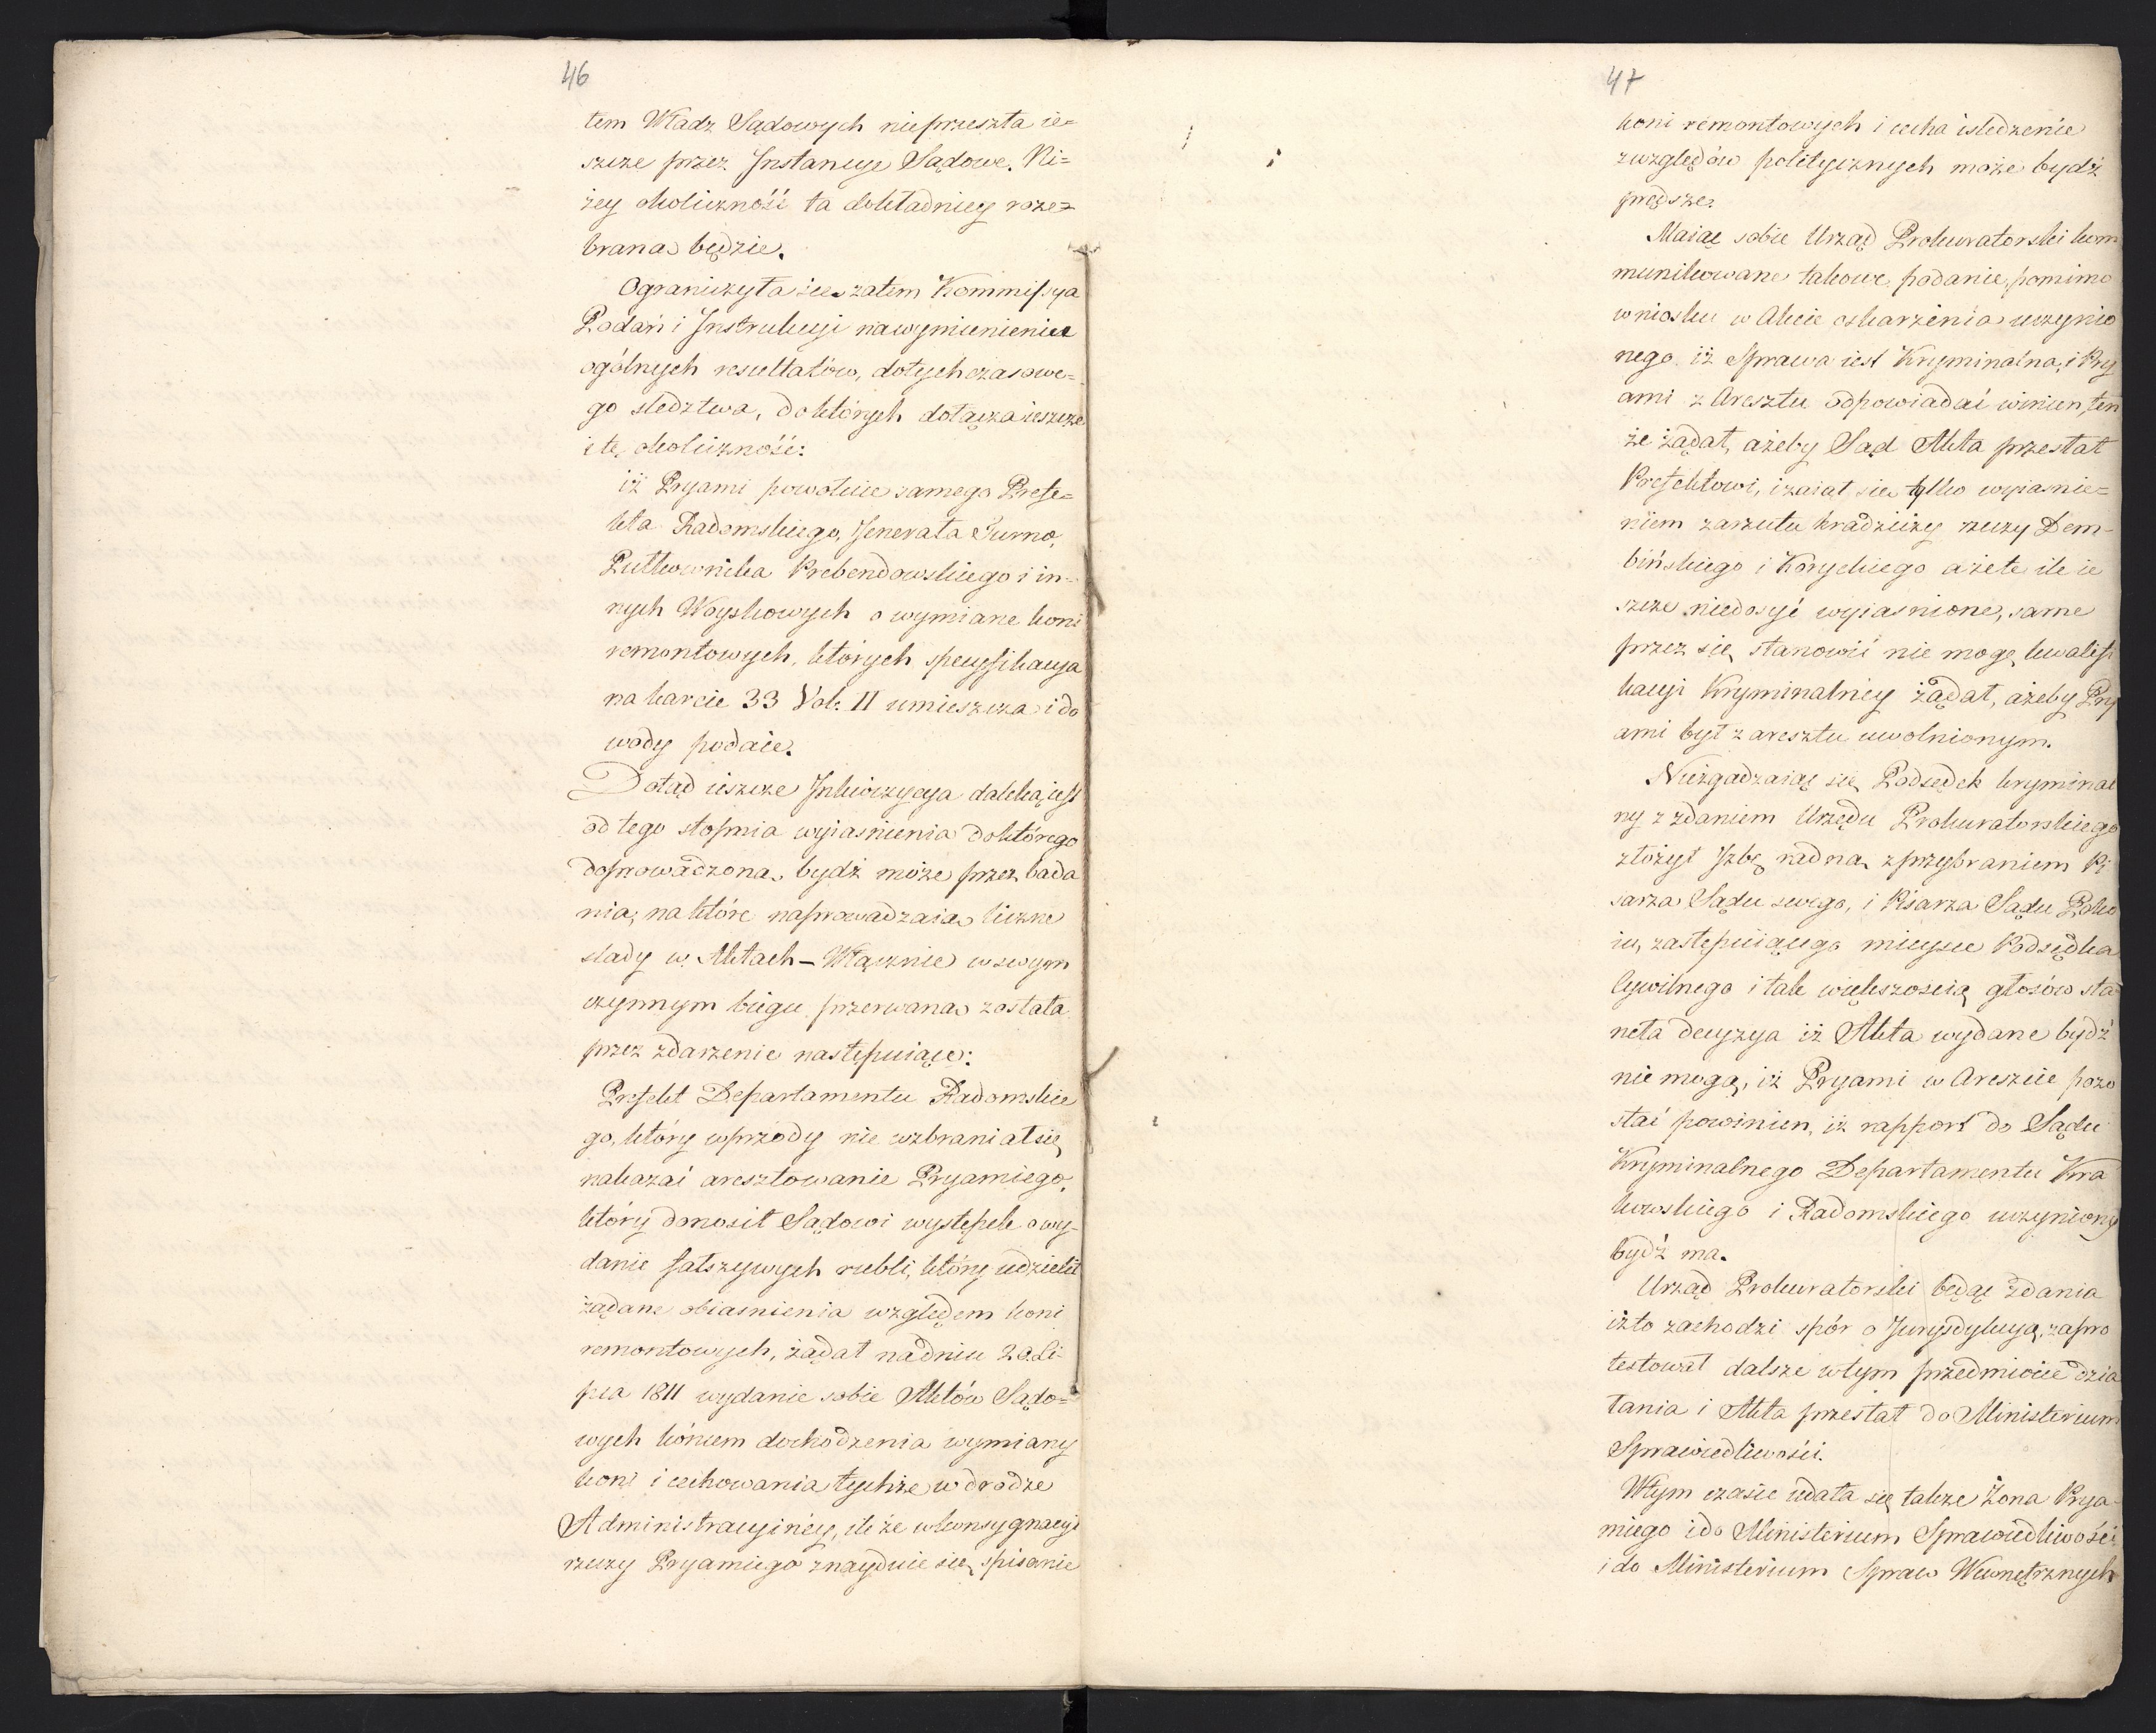 46
tem Władz Sądowych nieprzeszła ie=
szcze przez Instancye Sądowe. Ni=
żey okoliczność ta dokładniey roze=
brana będzie.
Ograniczyła się zatem Kommissya
Podań i Instrukcyi na wymienienie
ogólnych resultatów, dotychczasowe=
go sledztwa, do których dołącza ieszcze
i tę okoliczność:
iż Pryami powołuie samego Prefe=
kta Radomskiego, Jenerała Turno,
Pułkownika Prebendowskiego i in=
nych Woyskowych o wymianę koni
remontowych, których specyfikacya
na karcie 33 Vol: II umieszcza i do
wody podaie.
Dotąd ieszcze Inkwizycya daleką iest
od tego stopnia wyiasnienia do którego
doprowadzona bydź może przez bada
nia, na które naprowadzaią liczne
slady w Aktach - Włącznie w swym
czynnym biegu przerwana została
przez zdarzenie następuiące:
Prefekt Departamentu Radomskie
go, który wprzody nie wzbraniał się
nakazać aresztowanie Pryamiego,
który donosił Sądowi występek o wy=
danie fałszywych rubli, który udzielił
żądane obiasnienia względem koni
remontowych, żądał na dniu 20. Li=
pca 1811 wydanie sobie Aktów Sądo=
wych końcem dochodzenia wymiany
koni i cechowania tychże w drodze
Administracyiney, ile że w konsygnacyi
rzeczy Pryamiego znayduie się spisanie
47
koni remontowych i cecha i sledzenie
z względów politycznych może bydź
prędsze.
Maiąc sobie Urząd Prokuratorski kom
munikowane takowe podanie, pomimo
wniosku w Akcie oskarżenia uczynio
nego iż Sprawa iest Kryminalna, i Pry
ami z Aresztu odpowiadać winien, ten
że żądał, ażeby Sąd Akta przesłał
Prefektowi, i zaiął się tylko wyiasnie=
niem zarzutu kradzieży rzeczy Dem=
bińskiego i Koryckiego a że te ile ie
szcze niedosyć wyiasnione, same
przez się stanowić nie mogą kwalifi
kacyi Kryminalney żądał, ażeby Pry
ami był z aresztu uwolnionym.
Niezgadzaiąc się Podsędek kryminal
ny z zdaniem Urzędu Prokuratorskiego
złożył Izbę radną z przybraniem Pi
sarza Sądu swego, i Pisarza Sądu Poko
iu, zastępuiącego mieysce Podsędka
Cywilnego i tak większością głosów sta
nęła decyzya iż Akta wydane bydź
nie mogą, iż Pryami w Areszcie pozo
stać powinien, iż rapport do Sądu
Kryminalnego Departamentu Kra
kowskiego i Radomskiego uczyniony
bydź ma.
Urząd Prokuratorski będąc zdania
iż to zachodzi spór o Jurysdykcyą, zapro
testował dalsze w tym przedmiocie dzia
łania i Akta przesłał do Ministerium
Sprawiedliwości.
W tym czasie udała się także Zona Prya=
miego i do Ministerium Sprawiedliwości
i do Ministerium Spraw Wewnętrznych